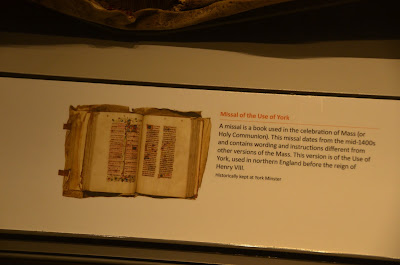 Missal of the Use of York
A missal is a book used in the celebration of Mass (or
Holy Communion). This missal dates from the mid-1400s
and contains wording and instructions different from
other versions of the Mass. This version is of the Use of
York, used in northern England before the reign of
Henry VIII.
Historically kept at York Minster